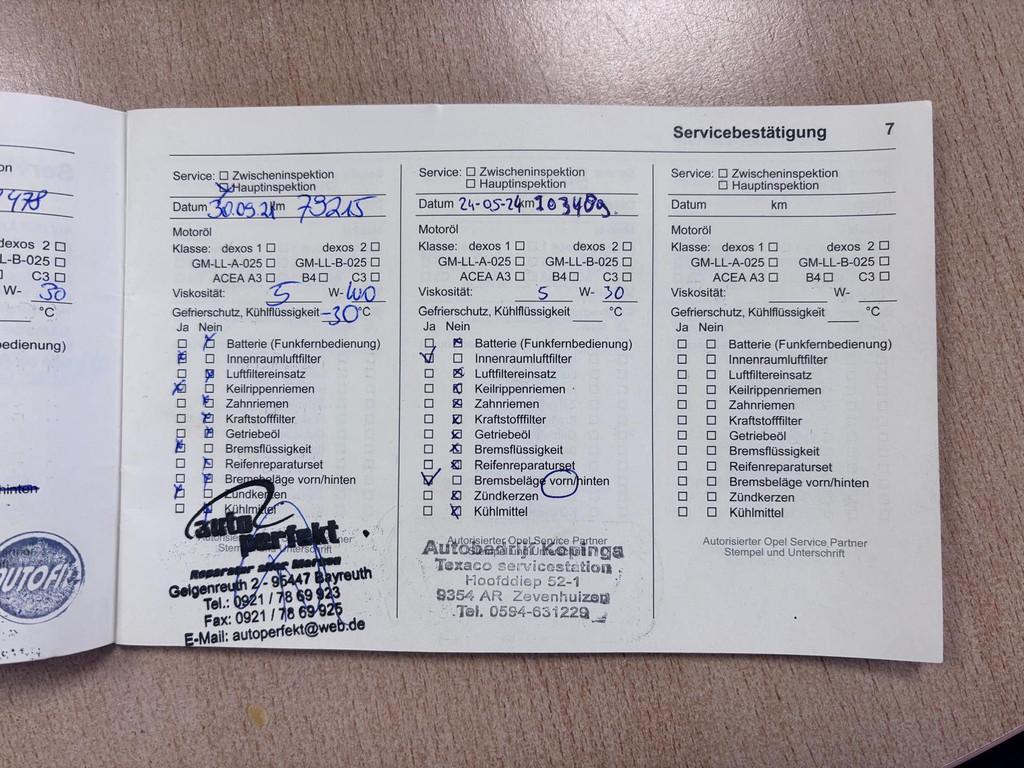 Servicebestätigung 7
on
478
dexos 2
LL-B-025
C3
W- 30
°C
bedienung)
hinten
AUTOFIT
Service: Zwischeninspektion
Hauptinspektion
Datum 30.09.21 km 79215
Motoröl
Klasse: dexos 1 dexos 2
GM-LL-A-025 GM-LL-B-025
ACEA A3 B4 C3
Viskosität: 5 W- 40
Gefrierschutz, Kühlflüssigkeit -30 °C
Ja Nein
Batterie (Funkfernbedienung)
Innenraumluftfilter
Luftfiltereinsatz
Keilrippenriemen
Zahnriemen
Kraftstofffilter
Getriebeöl
Bremsflüssigkeit
Reifenreparaturset
Bremsbeläge vorn/hinten
Zündkerzen
Kühlmittel
auto
perfekt
Reparatur aller Marken
Geigenreuth 2 - 95447 Bayreuth
Tel.: 0921 / 78 69 923
Fax: 0921 / 78 69 925
E-Mail: autoperfekt@web.de
Service: Zwischeninspektion
Hauptinspektion
Datum 24-05-24 km 103409.
Motoröl
Klasse: dexos 1 dexos 2
GM-LL-A-025 GM-LL-B-025
ACEA A3 B4 C3
Viskosität: 5 W- 30
Gefrierschutz, Kühlflüssigkeit °C
Ja Nein
Batterie (Funkfernbedienung)
Innenraumluftfilter
Luftfiltereinsatz
Keilrippenriemen
Zahnriemen
Kraftstofffilter
Getriebeöl
Bremsflüssigkeit
Reifenreparaturset
Bremsbeläge vorn/hinten
Zündkerzen
Kühlmittel
Autorisierter Opel Service Partner
Stempel und Unterschrift
Autobedrijf Kopinga
Texaco servicestation
Hoofddiep 52-1
9354 AR Zevenhuizen
Tel. 0594-631229
Service: Zwischeninspektion
Hauptinspektion
Datum km
Motoröl
Klasse: dexos 1 dexos 2
GM-LL-A-025 GM-LL-B-025
ACEA A3 B4 C3
Viskosität: W-
Gefrierschutz, Kühlflüssigkeit °C
Ja Nein
Batterie (Funkfernbedienung)
Innenraumluftfilter
Luftfiltereinsatz
Keilrippenriemen
Zahnriemen
Kraftstofffilter
Getriebeöl
Bremsflüssigkeit
Reifenreparaturset
Bremsbeläge vorn/hinten
Zündkerzen
Kühlmittel
Autorisierter Opel Service Partner
Stempel und Unterschrift